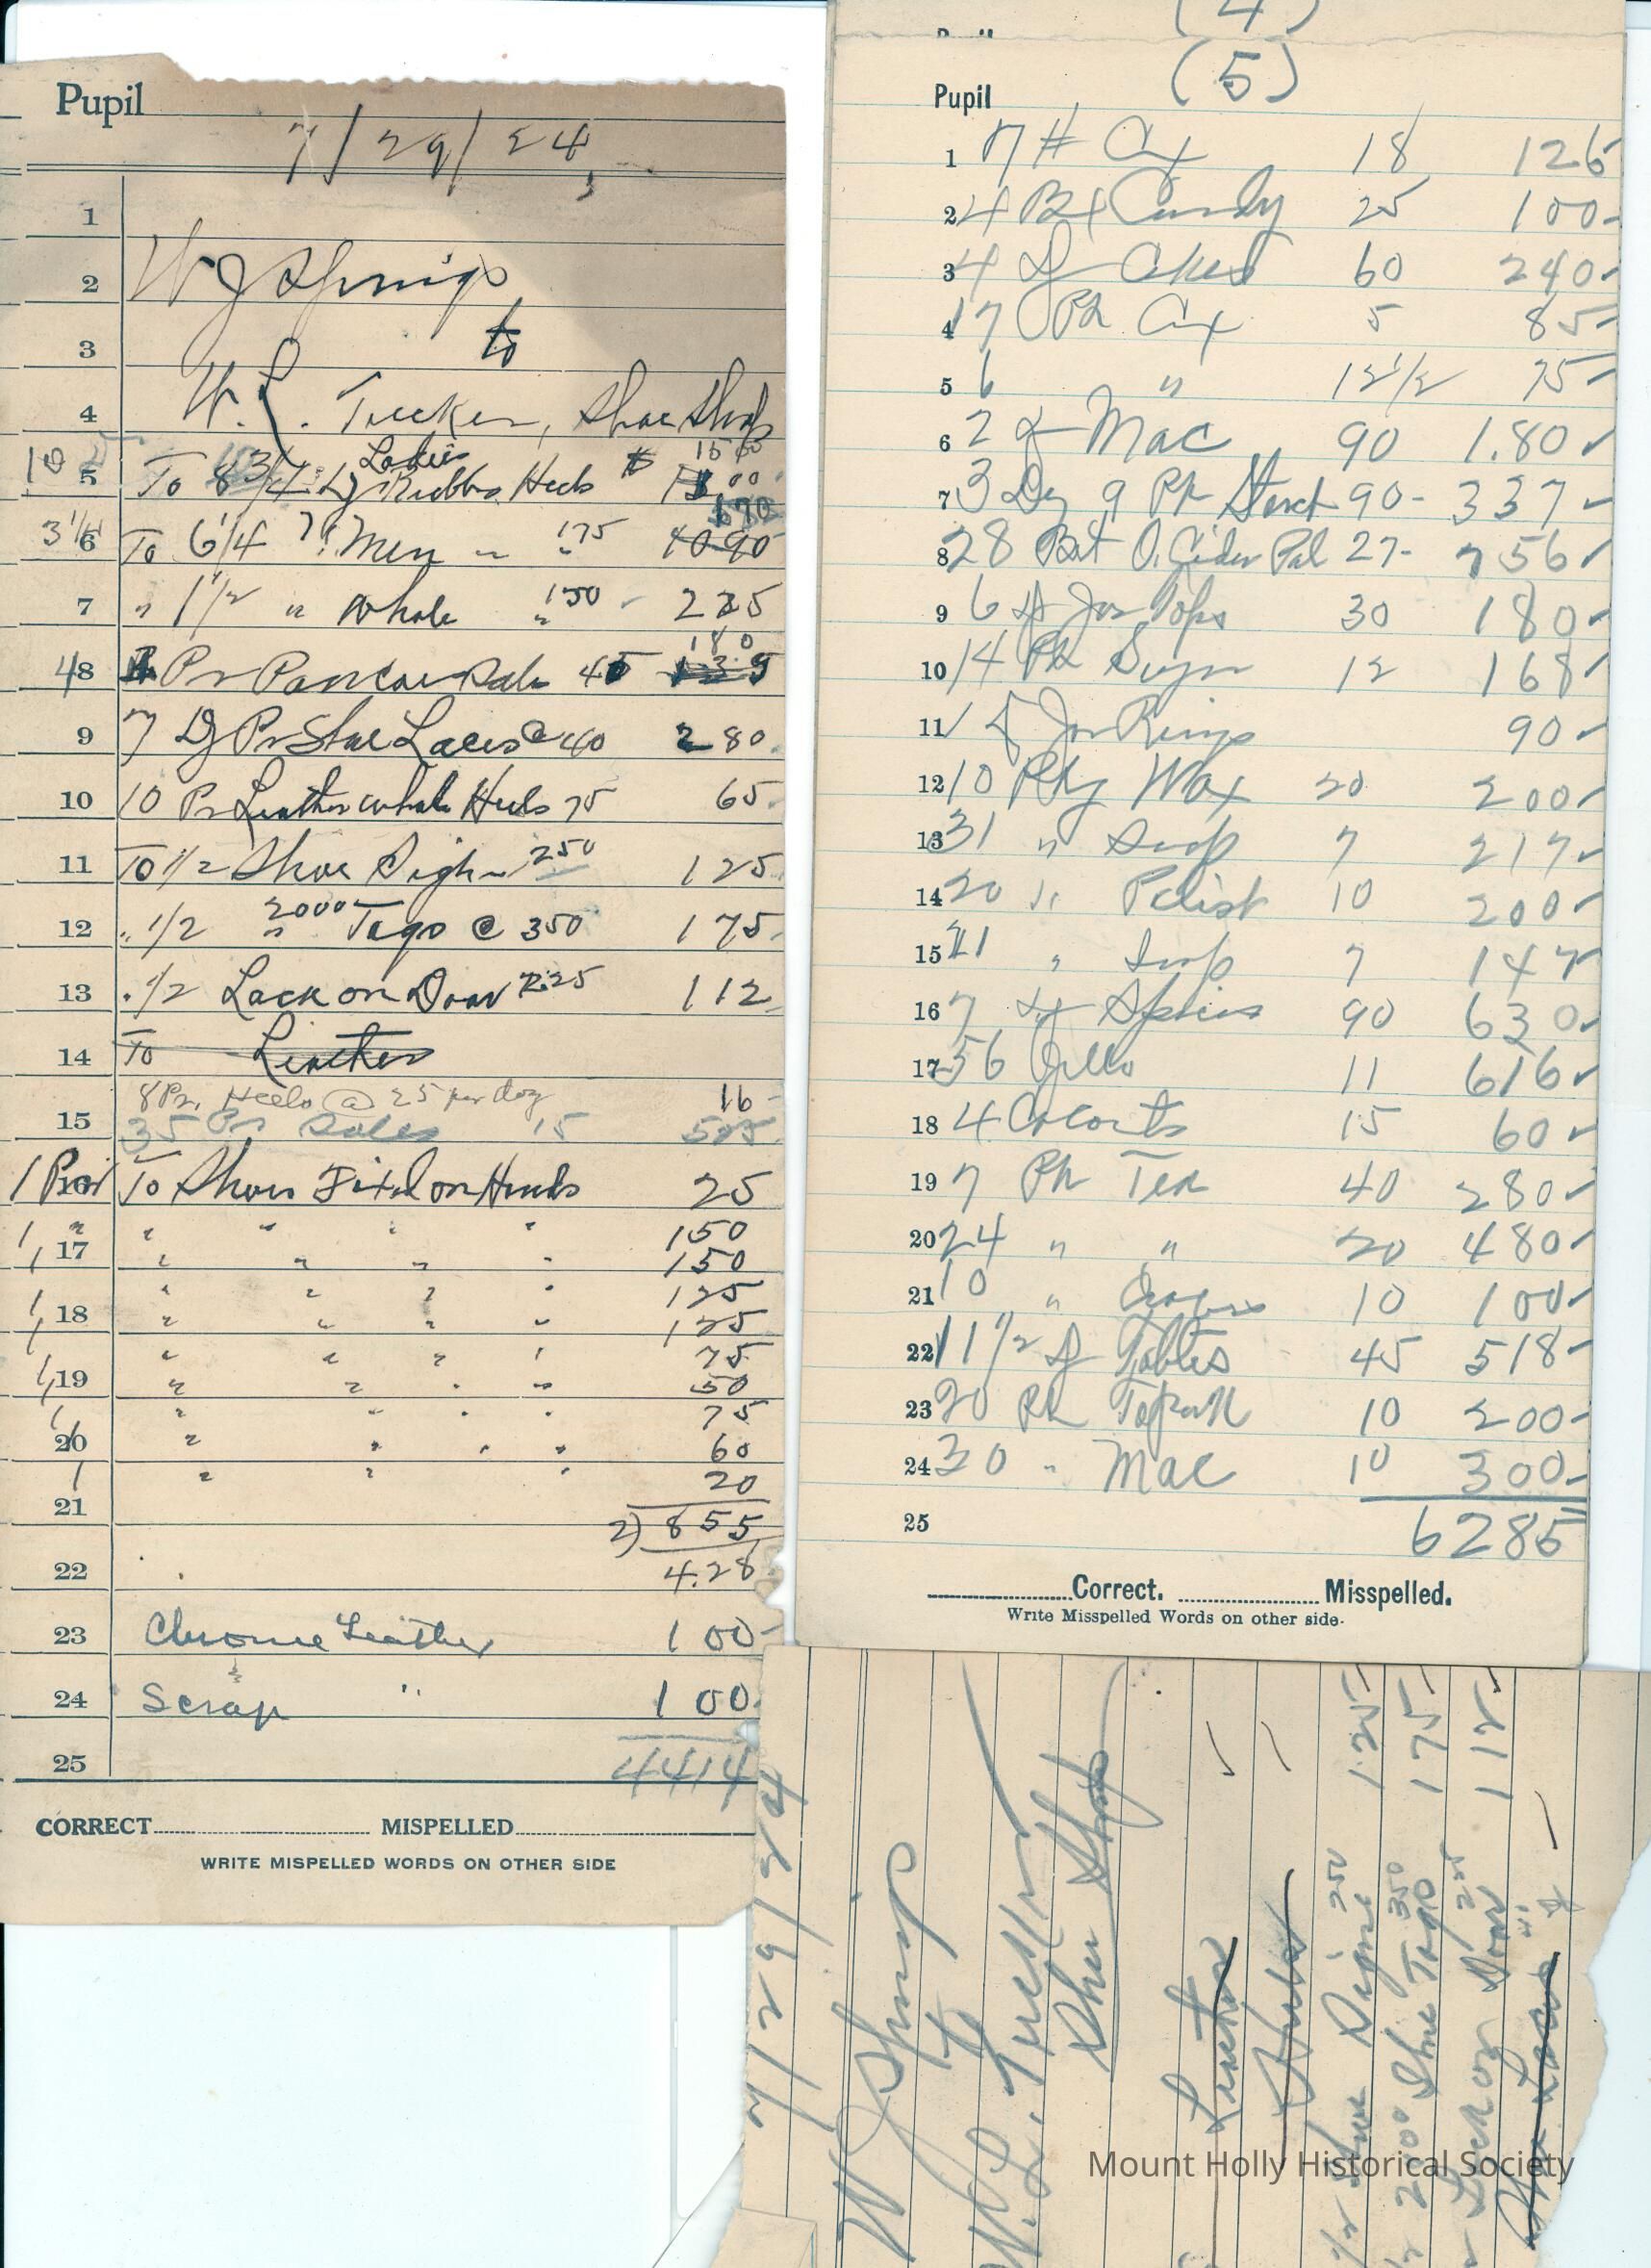 Pupil
7/29/24
1
2 W J Springs
3 to
4 W. L. Tucker, Shoe Shop
5 To 8 3/4 Dz Ladies Rubber Heels
6 To 6 1/4 " Men " 175
7 " 1 1/2 " Whole " 150 - 225
4/8 Pr Pancake Sale 45 180
9 7 Dz Pr Shoe Laces @ 40 280
10 10 Pr Leather whole Heels 75 65
11 To 1/2 Shoe Sign 250 125
12 " 1/2 " 2000 Tags @ 350 175
13 " 1/2 Lock on Door 2.25 112
14 To Leather
8 Pr. Heels @ 25 per doz 16
15 35 Pr Soles 15 525
1 Pair 16 To Shoes Fixed on Hands 25
1 " " " " " 150
1 17 " " " " 150
1 " " " " 125
1 18 " " " " 125
" " " " 75
1 19 " " " " 50
1 " " " " 75
1 20 " " " " 60
1 " " " 20
21 2) 855
22 4.28
23 Chrome Leather 100
24 Scrap " 100
25 4414
CORRECT MISPELLED
WRITE MISPELLED WORDS ON OTHER SIDE
(4)
(5)
Pupil
1 7 # 18 126
2 4 Bx Candy 25 100
3 4 Dz Cakes 60 240
4 17 Pk 5 85
5 6 " 12 1/2 75
6 2 Dz Mac 90 1.80
7 3 Dz 9 Pk Starch 90 - 337
8 28 Bot O. Cedar Pol 27 - 756
9 6 Dz Jar Tops 30 180
10 14 Pk 12 168
11 1 Dz Jar Rings 90
12 10 Pkg Wax 20 200
13 31 " Soap 7 217
14 20 " Polish 10 200
15 21 " Soap 7 147
16 7 Dz Spices 90 630
17 56 Jello 11 616
18 4 15 60
19 7 Pk Tea 40 280
20 24 " " 20 480
21 10 " 10 100
22 11 1/2 Dz Tablets 45 518
23 20 Pk 10 200
24 30 " Mac 10 300
25 6285
Correct. Misspelled.
Write Misspelled Words on other side.
7/29/24
W J Springs
to
W. L. Tucker
Shoe Shop
Leather
1/2 Shoe Signs 250 1.25
1/2 2000 Shoe Tags 350 175
Lock on Door 225 112
Shoe Laces
Mount Holly Historical Society